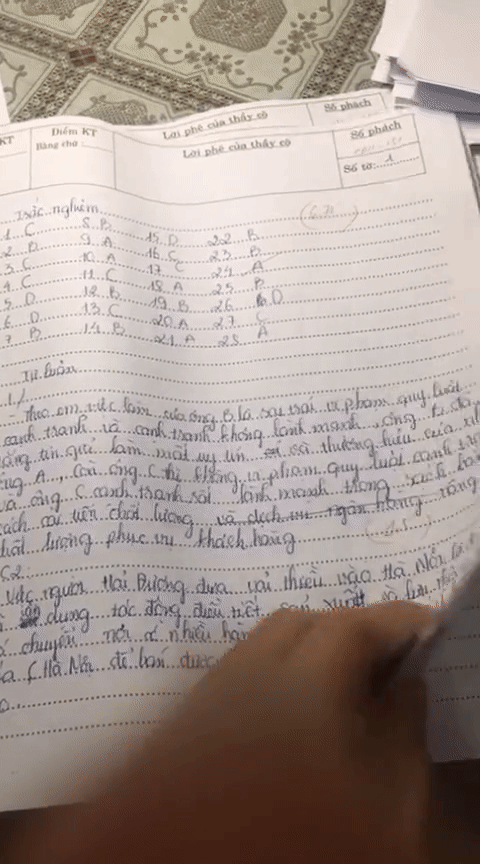 KT Điểm KT Lời phê của thầy cô Số phách
Bằng chữ: Lời phê của thầy cô Số phách
Số tờ: 1
Trắc nghiệm
1. C 8. B 15. D 22. B
2. D 9. A 16. C 23. B
3. C 10. A 17. C 24. A
4. C 11. C 18. A 25. B
5. D 12. B 19. B 26. D
6. D 13. C 20. A 27. C
7. B 14. B 21. A 28. A
Tự luận
1/
- Theo em việc làm của ông B là sai trái vi phạm quy luật
cạnh tranh và cạnh tranh không lành mạnh, ông ta đã
tin giả làm mất uy tín và thương hiệu của
A, còn ông C thì không vi phạm quy luật cạnh
và ông C cạnh tranh lành mạnh trong sạch
cách cải tiến chất lượng và dịch vụ ngân hàng
chất lượng phục vụ khách hàng
C2
Việc người Hải Dương đưa vải thiều vào Hà Nội
dụng tác động điều tiết sản xuất và lưu
chuyển nơi nhiều
Hà Nội để bán được